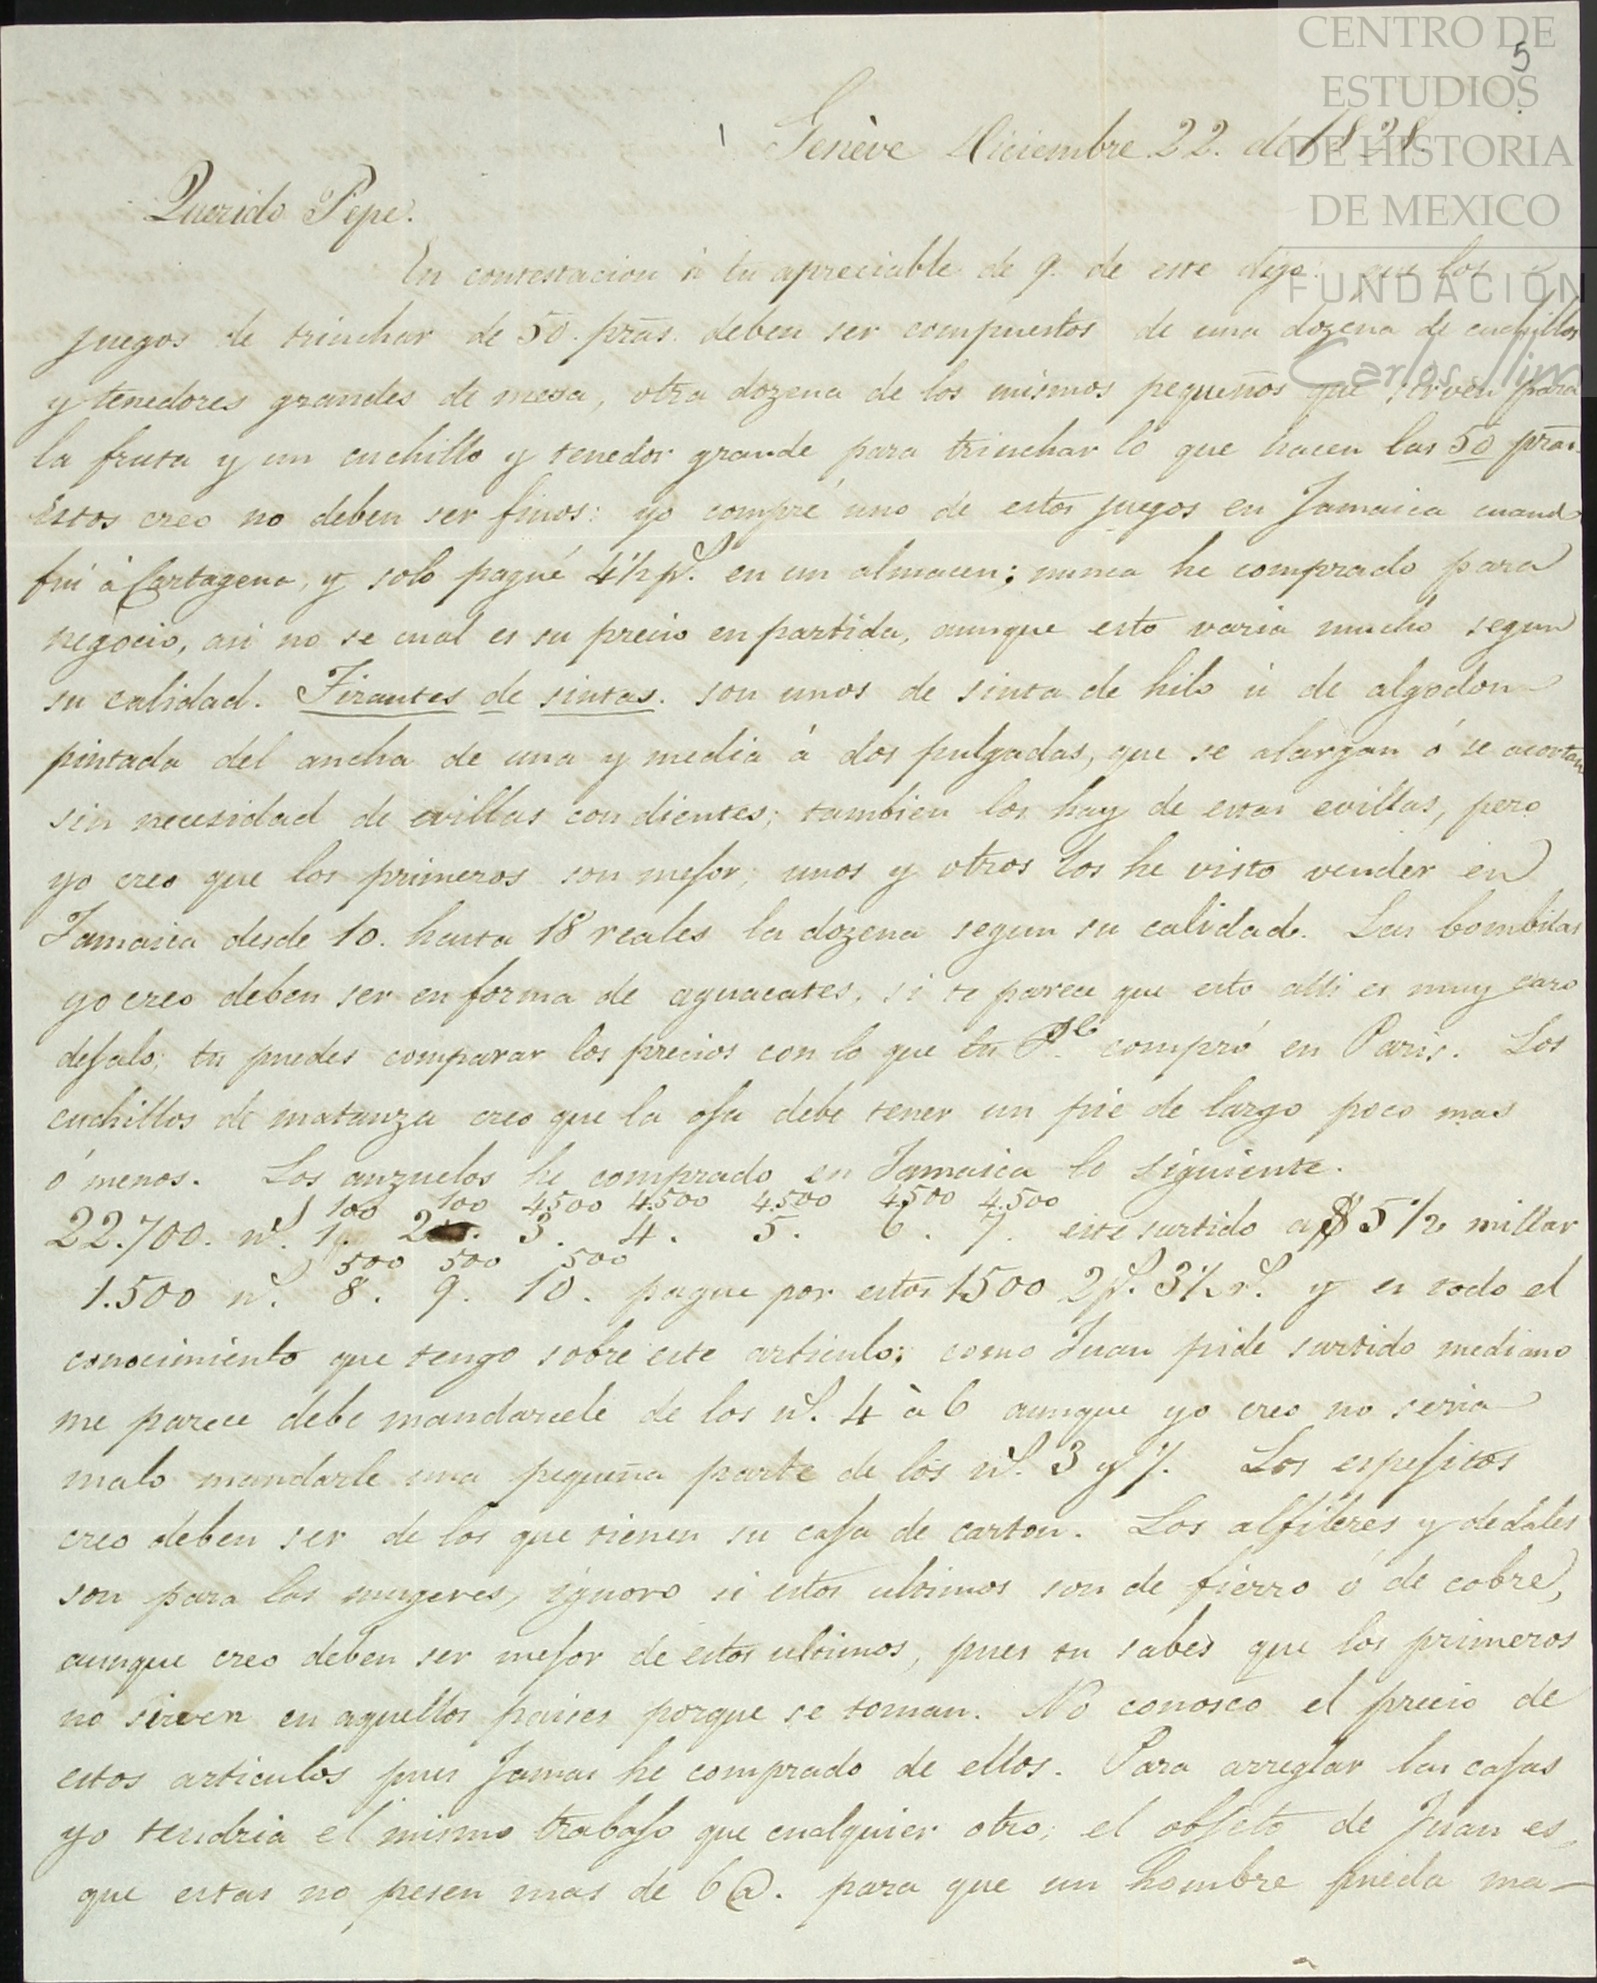 CENTRO DE
ESTUDIOS
DE HISTORIA
DE MEXICO
FUNDACIÓN
Carlos Slim
5
Genève Diciembre 22. de 1828.
Querido Pepe.
En contestacion á tu apreciable de 9. de este digo: que los
juegos de trinchar de 50. pzas. deben ser compuestos de una dozena de cuchillos
y tenedores grandes de mesa, otra dozena de los mismos pequeños que sirven para
la fruta y un cuchillo y tenedor grande para trinchar lo que hacen las 50 pzas.
Estos creo no deben ser finos: yo compré uno de estos juegos en Jamaica cuando
fui á Cartagena, y solo pagué 4½ ps. en un almacen; nunca he comprado para
negocio, asi no se cual es su precio en partida, aunque esto varia mucho segun
su calidad. Tirantes de sintas. son unos de sinta de hilo ú de algodon
pintada del ancha de una y media á dos pulgadas, que se alargan ó se acortan
sin necesidad de evillas con dientes; tambien los hay de estas evillas, pero
yo creo que los primeros son mejor; unos y otros los he visto vender en
Jamaica desde 10. hasta 18 reales la dozena segun su calidad. Las bombitas
yo creo deben ser en forma de aguacates, si te parece que esto alli es muy caro
dejalo; tu puedes comparar los precios con lo que tu compró en Paris. Los
cuchillos de matanza creo que la oja debe tener un pie de largo poco mas
ó menos. Los anzuelos he comprado en Jamaica lo siguiente.
100 100 4.500 4.500 4.500 4.500 4.500
22.700. ns. 1. 2. 3. 4. 5. 6. 7. este surtido a $ 5½ millar
500 500 500
1.500 ns. 8. 9. 10. pague por estos 1500 2ps. 3½ rs. y es todo el
conocimiento que tengo sobre este articulo; como Juan pide surtido mediano
me parece debe mandarcele de los ns. 4 à 6 aunque yo creo no seria
malo mandarle una pequeña parte de los ns. 3 y 7. Los espejitos
creo deben ser de los que tienen su caja de carton. Los alfileres y dedales
son para las mugeres, ignoro si estos ultimos son de fierro ó de cobre,
aunque creo deben ser mejor de estos ultimos, pues tu sabes que los primeros
no sirven en aquellos paises porque se toman. No conosco el precio de
estos articulos pues Jamas he comprado de ellos. Para arreglar las cajas
yo tendria el mismo trabajo que cualquier otro; el objeto de Juan es
que estas no pesen mas de 6@. para que un hombre pueda ma-